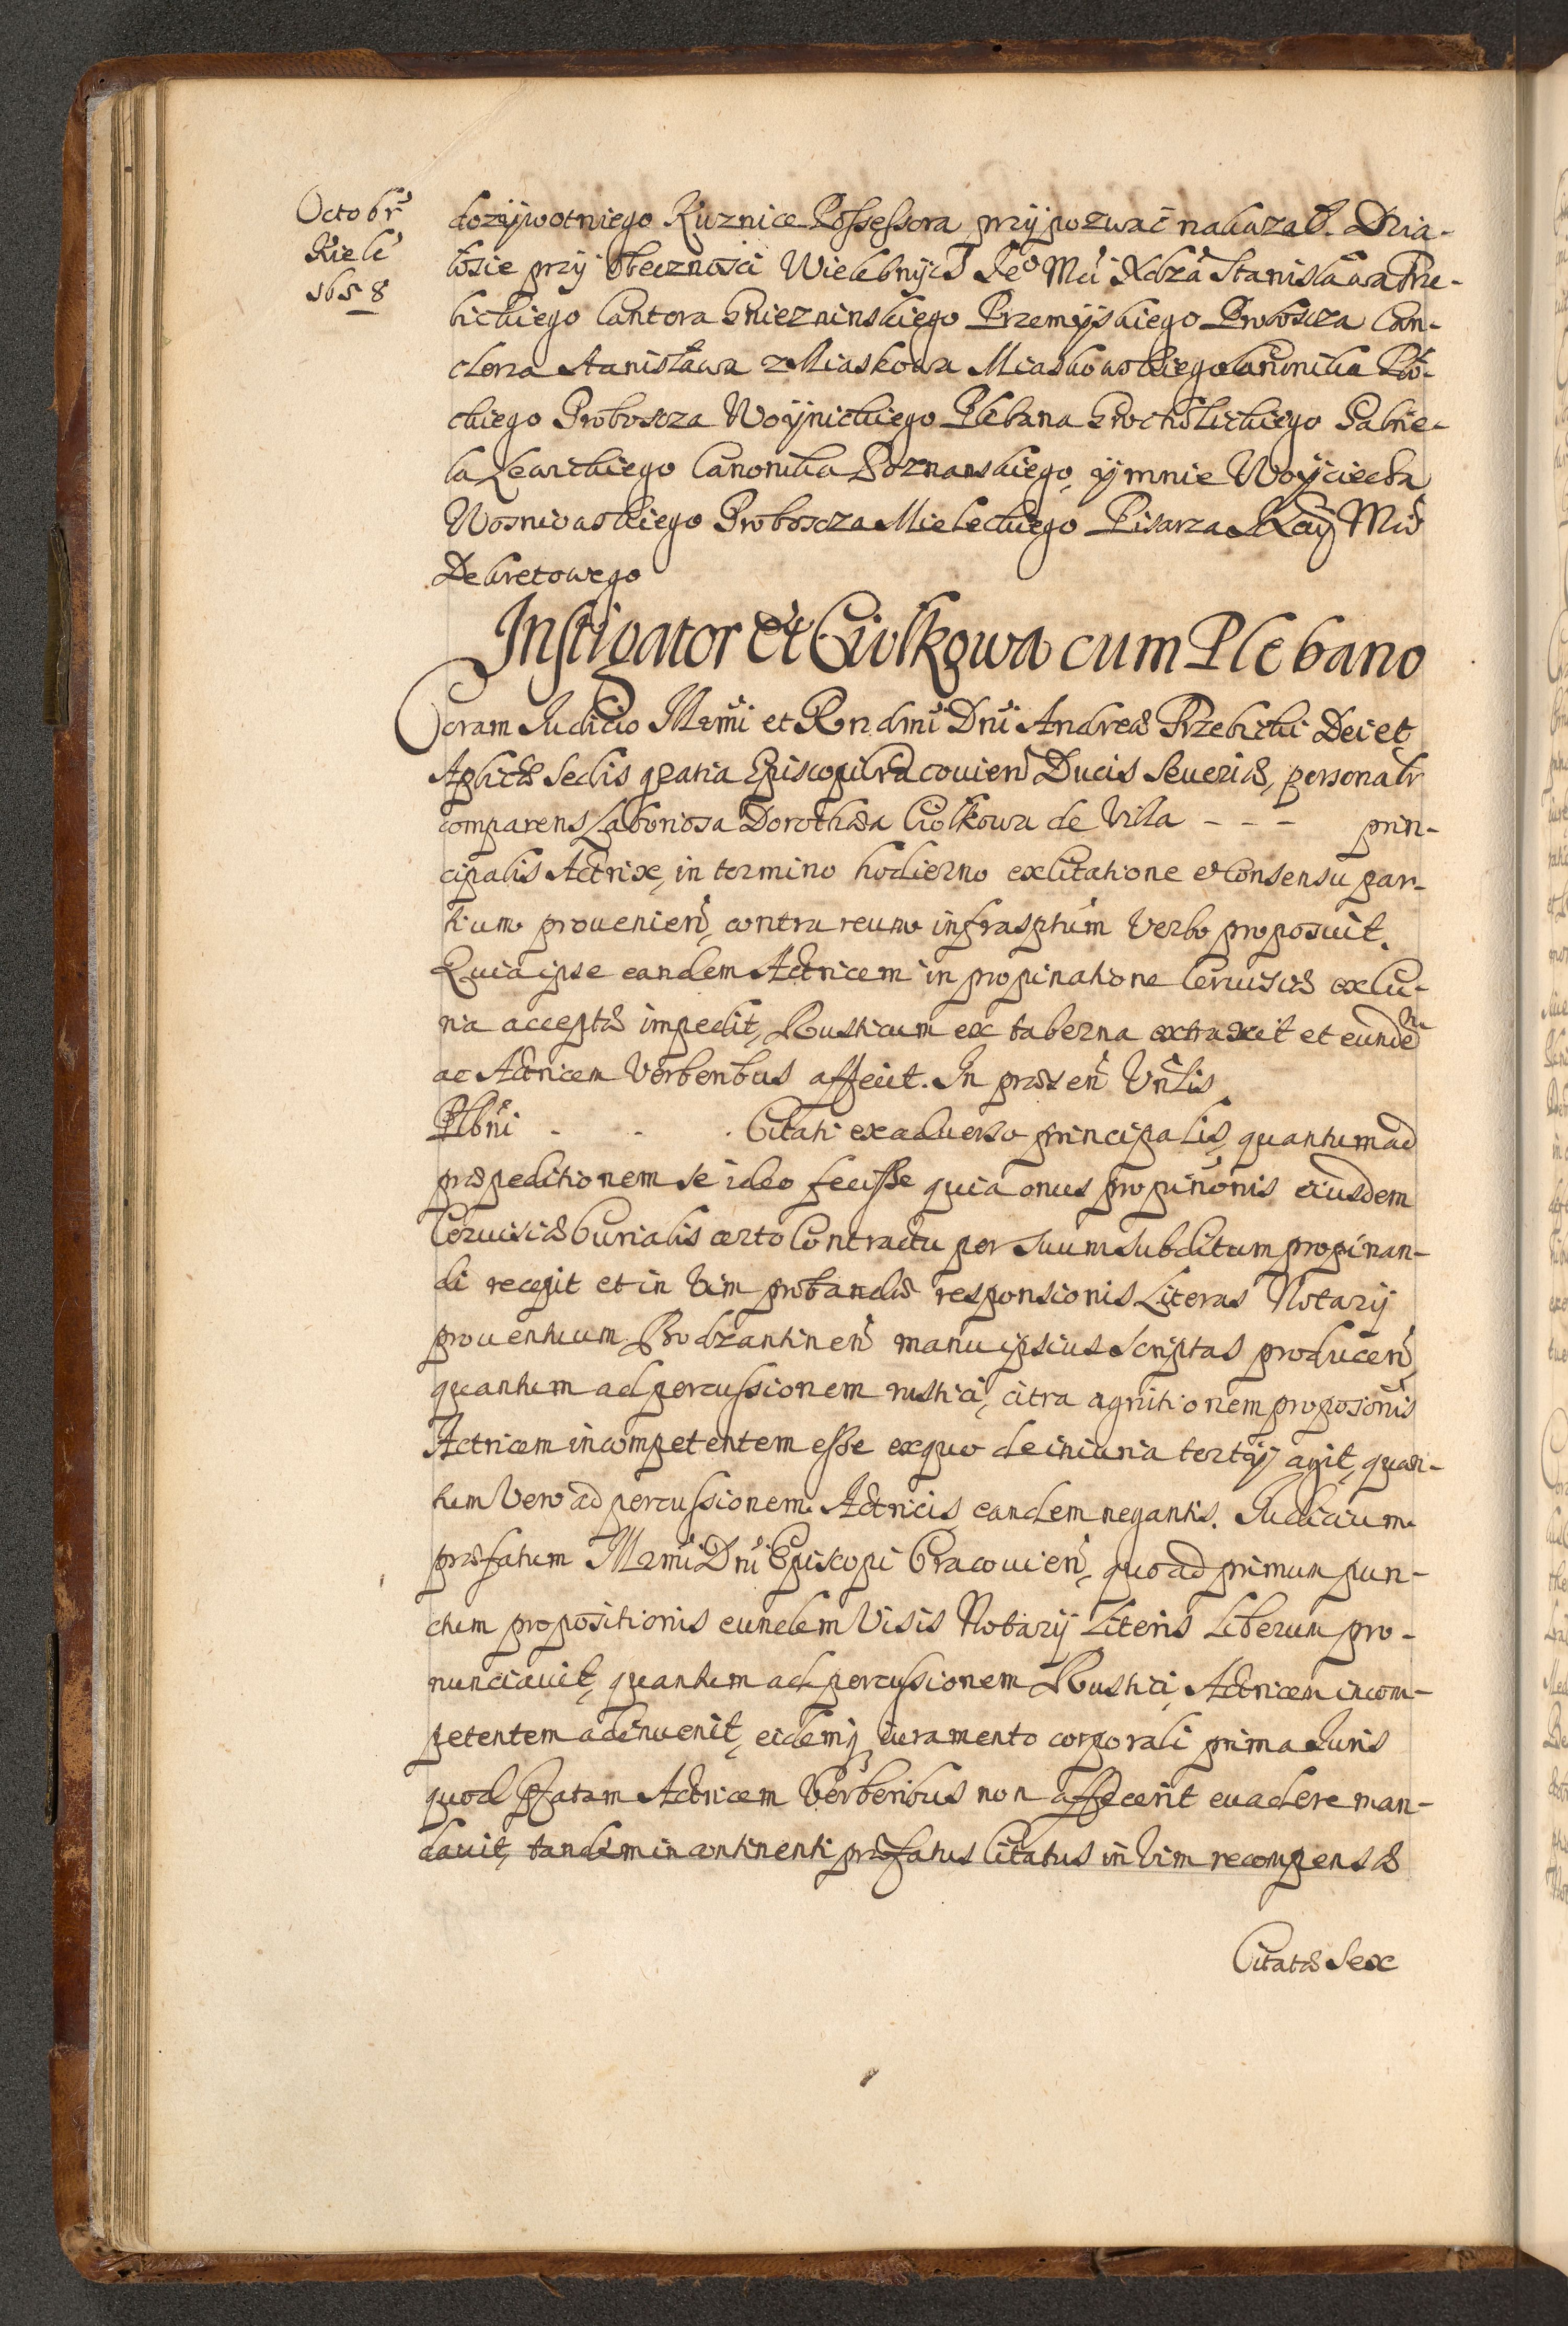 Octobr
Kielc
1658
dozywotniego Kuznice Possessora przypozwać nakazał. Dzia-
łosie przy obecznosci Wielebnych Jeo Mci Xdza Stanisława Trze-
bickiego Cantora Gniezninskiego Przemyskiego Proboscza Can-
clerza Stanisława z Miaskowa Miaskowskiego Canonika Pło-
ckiego Proboscza Woynickiego Plebana Grocholickiego Gabrie-
la Canonika Poznanskiego, y mnie Woyciecha
Wosniowskiego Proboscza Mieleckiego Pisarza Xcay Mci
Dekretowego
Instigator et Ciołkowa cum Plebano
Coram Judicio Illmi et Rndmi Dni Andreæ Trzebicki Dei et
Aplicæ Sedis gratia Episcopi Cracovien Ducis Severiæ, personalr
comparens Laboriosa Dorothæa Ciołkowa de Villa - - - prin-
cipalis Actrix, in termino hodierno ex citatione et consensu par-
tium provenien, contra reum infrasptum verbo proposuit.
Quia ipse eandem Actricem in propinatione Cervisiæ ex Cu-
ria acceptæ impedit, Rusticum ex taberna extraxit et eundem
ac Actricem Verberibus affecit. In præsen Vnlis
Plbni - - - Citati ex adverso principalis, quantum ad
præpeditionem se ideo fecisse quia onus propinonis eiusdem
Cervisiæ Curialis certo Contractu per suum subditum propinan-
di recepit et in vim probandæ responsionis Literas Notarij
proventuum Bodzantinen manu ipsius scriptas producen,
quantum ad percussionem rustici, citra agnitionem proposonis
Actricem incompetentem esse ex quo de iniuria tertij agit, quan-
tum vero ad percussionem Actricis eandem negantis. Judicium
præfatum Illmi Dni Episcopi Cracovien, quo ad primum pun-
ctum propositionis eundem Visis Notarij Literis Liberum pro-
nunciavit, quantum ad percussionem Rustici, Actricem incom-
petentem adinvenit, eidemq iuramento corporali prima Juris
quod pfatam Actricem Verberibus non affecerit evadere man-
davit, tandem in continenti præfatus Citatus in Vim recompensæ
Citatæ Sex